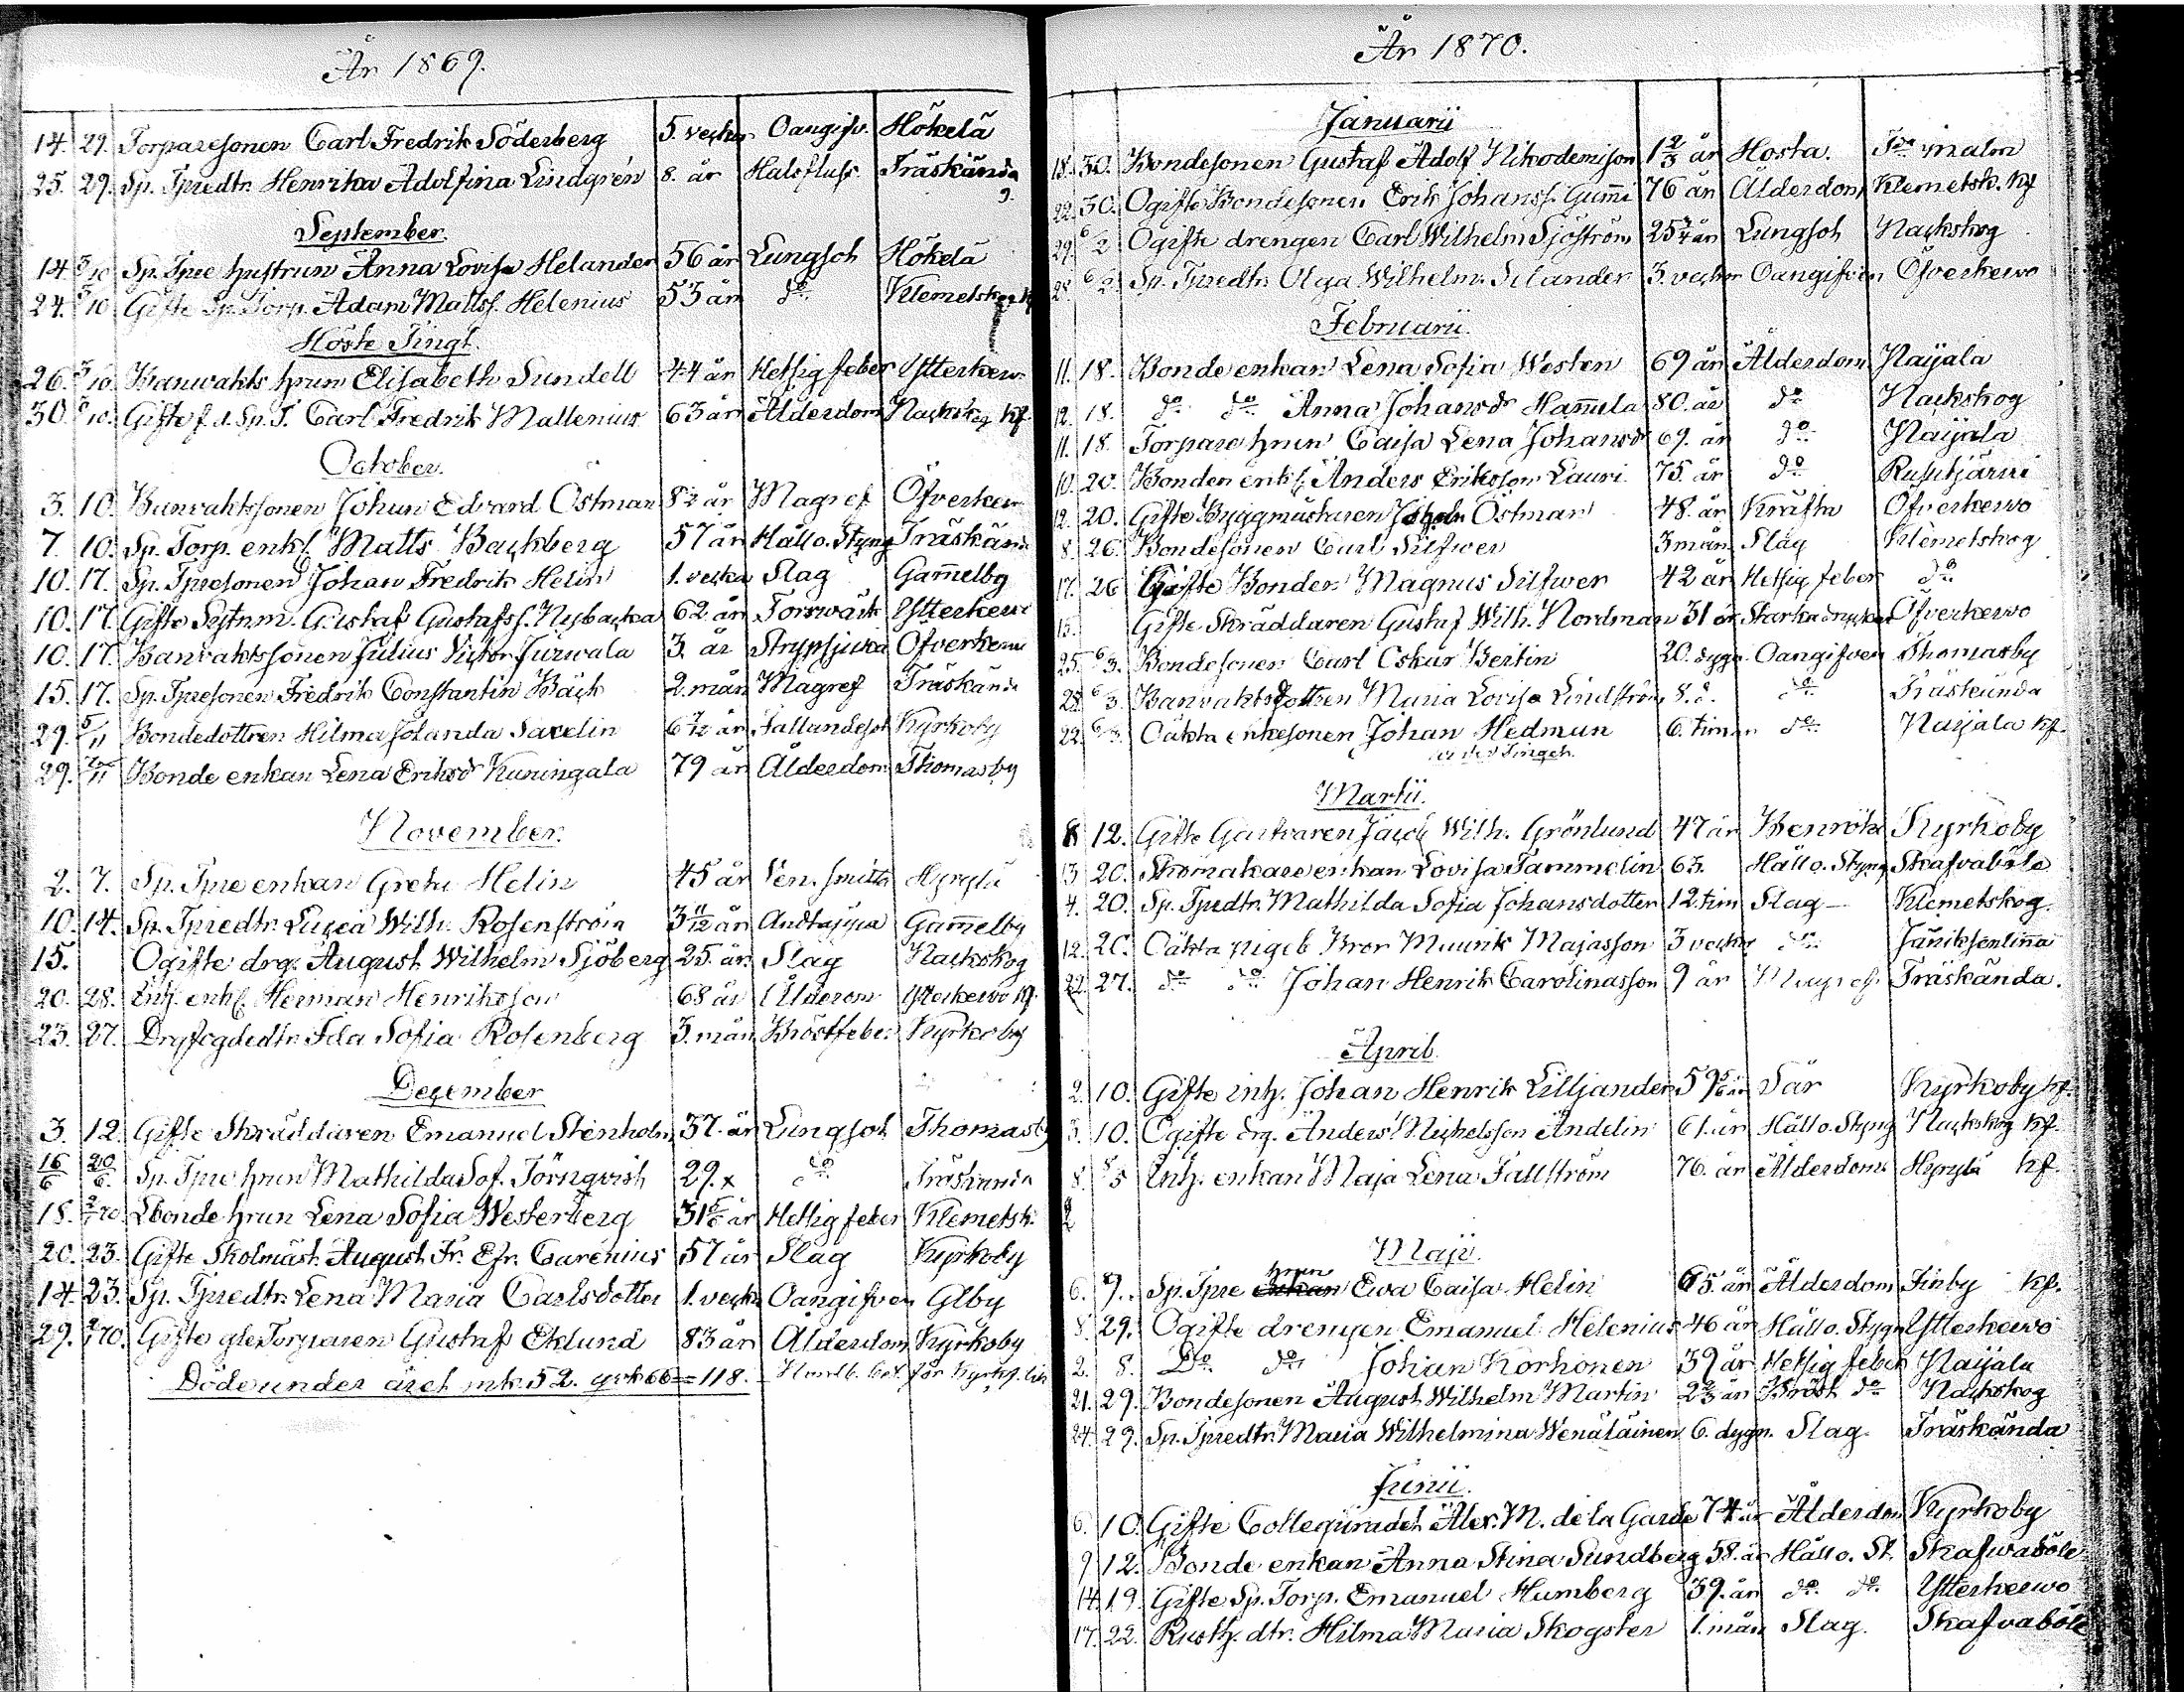 År 1869.
14. 29. Torparesonen Carl Fredrik Söderberg 5. veckor Oangifv. Hökelä
25. 29. Sp. Tpredtr. Henrika Adolfina Lindgrén 8. år Halsfluss Träskända
September.
14. 3/10 Sp. Tpre hustrun Anna Lovisa Helander 56 år Lungsot Hökelä
24. 3/10 Gifte Sp. Torp. Adam Matts. Helenius 53 år do Klemetskog
Höste Tingt.
26. 3/10. Banvakts hrun Elisabeth Sundell 44 år Hetsig feber Ytterkerv
30. 10. Gifte f.d. Sp. T. Carl Fredrik Mallenius 63 år Ålderdom Nackskog hf
October.
3. 10. Banvaktssonen Johan Edvard Östman 8½ år Magref Öfverkerv
7. 10. Sp. Torp. enkl. Matts Backberg 57 år Håll o. Styng Träskända
10. 17. Sp. Tpresonen Johan Fredrik Helin 1. vecka Slag Gammelby
10. 17. Gifte Sytnm. Gustaf Gustafss. Nybacka 62 år Torrwärk Ytterkerv
10. 17. Banvaktssonen Julius Victor Jürwala 3. år Strypsjuka Öfverkerv
15. 17. Sp. Tpresonen Fredrik Constantin Bäck 2. mån Magref Träskända
29. 5/11 Bondedottren Hilma Jolanda Savelin 6 1/12 år Fallandesot Kyrkoby
29. /11 Bonde enkan Lena Eriksdr Kuningala 79 år Ålderdom Thomasby
November.
2. 7. Sp. Tpre enkan Greta Helin 45 år Ven. smitta Hyrylä
10. 14. Sp. Tpredtr. Lucia Wilh. Rosenström 3 11/12 år Andtäppa Gammelby
15. Ogifte drg. August Wilhelm Sjöberg 25. år. Slag Nackskog
20. 28. Inh. enkl. Herman Henriksson 68 år Ålderom Ytterkervo hf.
23. 27. Dryfogdedtr. Ida Sofia Rosenberg 3. mån Bröstfeber Kyrkoby
December
3. 12. Gifte Skräddaren Emanuel Stenholm 37. år Lungsot Thomasby
16/6 20/6. Sp. Tpre hrun Mathilda Sof. Törnqvist 29. x do Träskända
18. 2/1 70 Lbonde hrun Lena Sofia Westerberg 31 5/6 år Hetsig feber Klemetsk.
20. 23. Gifte Skolmäst. August Fr. Efr. Carenius 57 år Slag Kyrkoby
14. 23. Sp. Tpredtr. Lena Maria Carlsdotter 1. vecka Oangifven Glby
29. 2/1 70. Gifte gle Torparen Gustaf Eklund 83 år Ålderdom Kyrkoby
Döde under året mk. 52. qvk 66 = 118.
År 1870.
Januarii
18. 30. Bondesonen Gustaf Adolf Nikodemisson 1 2/3 år Hosta.
22. 30. Ogifte Bondesonen Erik Johanss. Gummi 76 år Ålderdom Klemetsk. hf
29. 6/2 Ogifte drengen Carl Wilhelm Sjöström 25 3/4 år Lungsot Nackskog
28. 6/2. Sp. Tpredtr. Olga Wilhelm. Selander 3. veckor Oangifven Öfverkervo
Februarii.
11. 18. Bonde enkan Lena Sofia Westen 69 år Ålderdom Naijala
12. 18. do do Anna Johansdr Hamula 80. år do Nackskog
11. 18. Torpare hrun Caisa Lena Johansdr 69. år do Naijala
10. 20. Bonden enkl. Anders Eriksson Lauri. 75. år do Rusutjärvi
12. 20. Gifte Byggmästaren Johan Östman 48. år Kräfta Öfverkervo
8. 26. Bondesonen Carl Silfwer 3 mån Slag Klemetskog
17. 26 Gifte Bonden Magnus Silfwer 42 år Hetsig feber do
15. Gifte Skräddaren Gustaf Wilh. Nordman 31 år Starka drycker Öfverkervo
25. 6/3. Bondesonen Carl Oskar Bertin 20. dygn Oangifven Thomasby
28. 6/3. Banvaktsdottren Maria Lovisa Lindström 8. d. do Träskända
22. 6/3. Oäkta enkesonen Johan Hedman 6. timar do Naijala hf.
Martii.
8 12. Gifte Garfvaren Jacob Wilh. Grönlund 47 år Benröta Kyrkoby
13 20. Skomakare enkan Lovisa Tammelin 63. Håll o. Styng Skafvaböle
4. 20. Sp. Tpredtr. Mathilda Sofia Johansdotter 12. tim Slag Klemetskog.
12. 20. Oäkta pigeb. Bror Maurik Majasson 3 veckor do Jäniksenlinna
22. 27. do do Johan Henrik Carolinasson 9 år Magref Träskända.
April.
2. 10. Gifte inh. Johan Henrik Lilljander 59 5/6 år Sår Kyrkoby hf.
3. 10. Ogifte drg. Anders Michelsson Andelin 61. år Håll o. Styng Nackskog hf.
8. 8/5 Inh. enkan Maja Lena Fallström 76. år Ålderdom Hyrylä hf.
Maji.
6. 9. Sp. Tpre hrun Ewa Caisa Helin 65. år Ålderdom Finby hf.
8. 29. Ogifte drengen Emanuel Helenius 46 år Håll o. Stygn Ytterkervo
2. 8. Do do Johan Korhonen 39 år Hetsig feber Naijala
21. 29. Bondesonen August Wilhelm Martin 2 2/3 år Bröst do Nackskog
24. 29. Sp. Tpredtr. Maria Wilhelmina Wenäläinen 6. dygn. Slag. Träskända
Junii.
6. 10. Gifte Collegiirådet Alex. M. de la Garde 74 år Ålderdom Kyrkoby
9 12. Bonde enkan Anna Stina Sundberg 58. år Håll o. St. Skafwaböle
14. 19. Gifte Sp. Torp. Emanuel Humberg 39. år do do. Ytterkervo
17. 22. Rusth. dtr. Hilma Maria Skogster 1. mån Slag. Skafvaböle